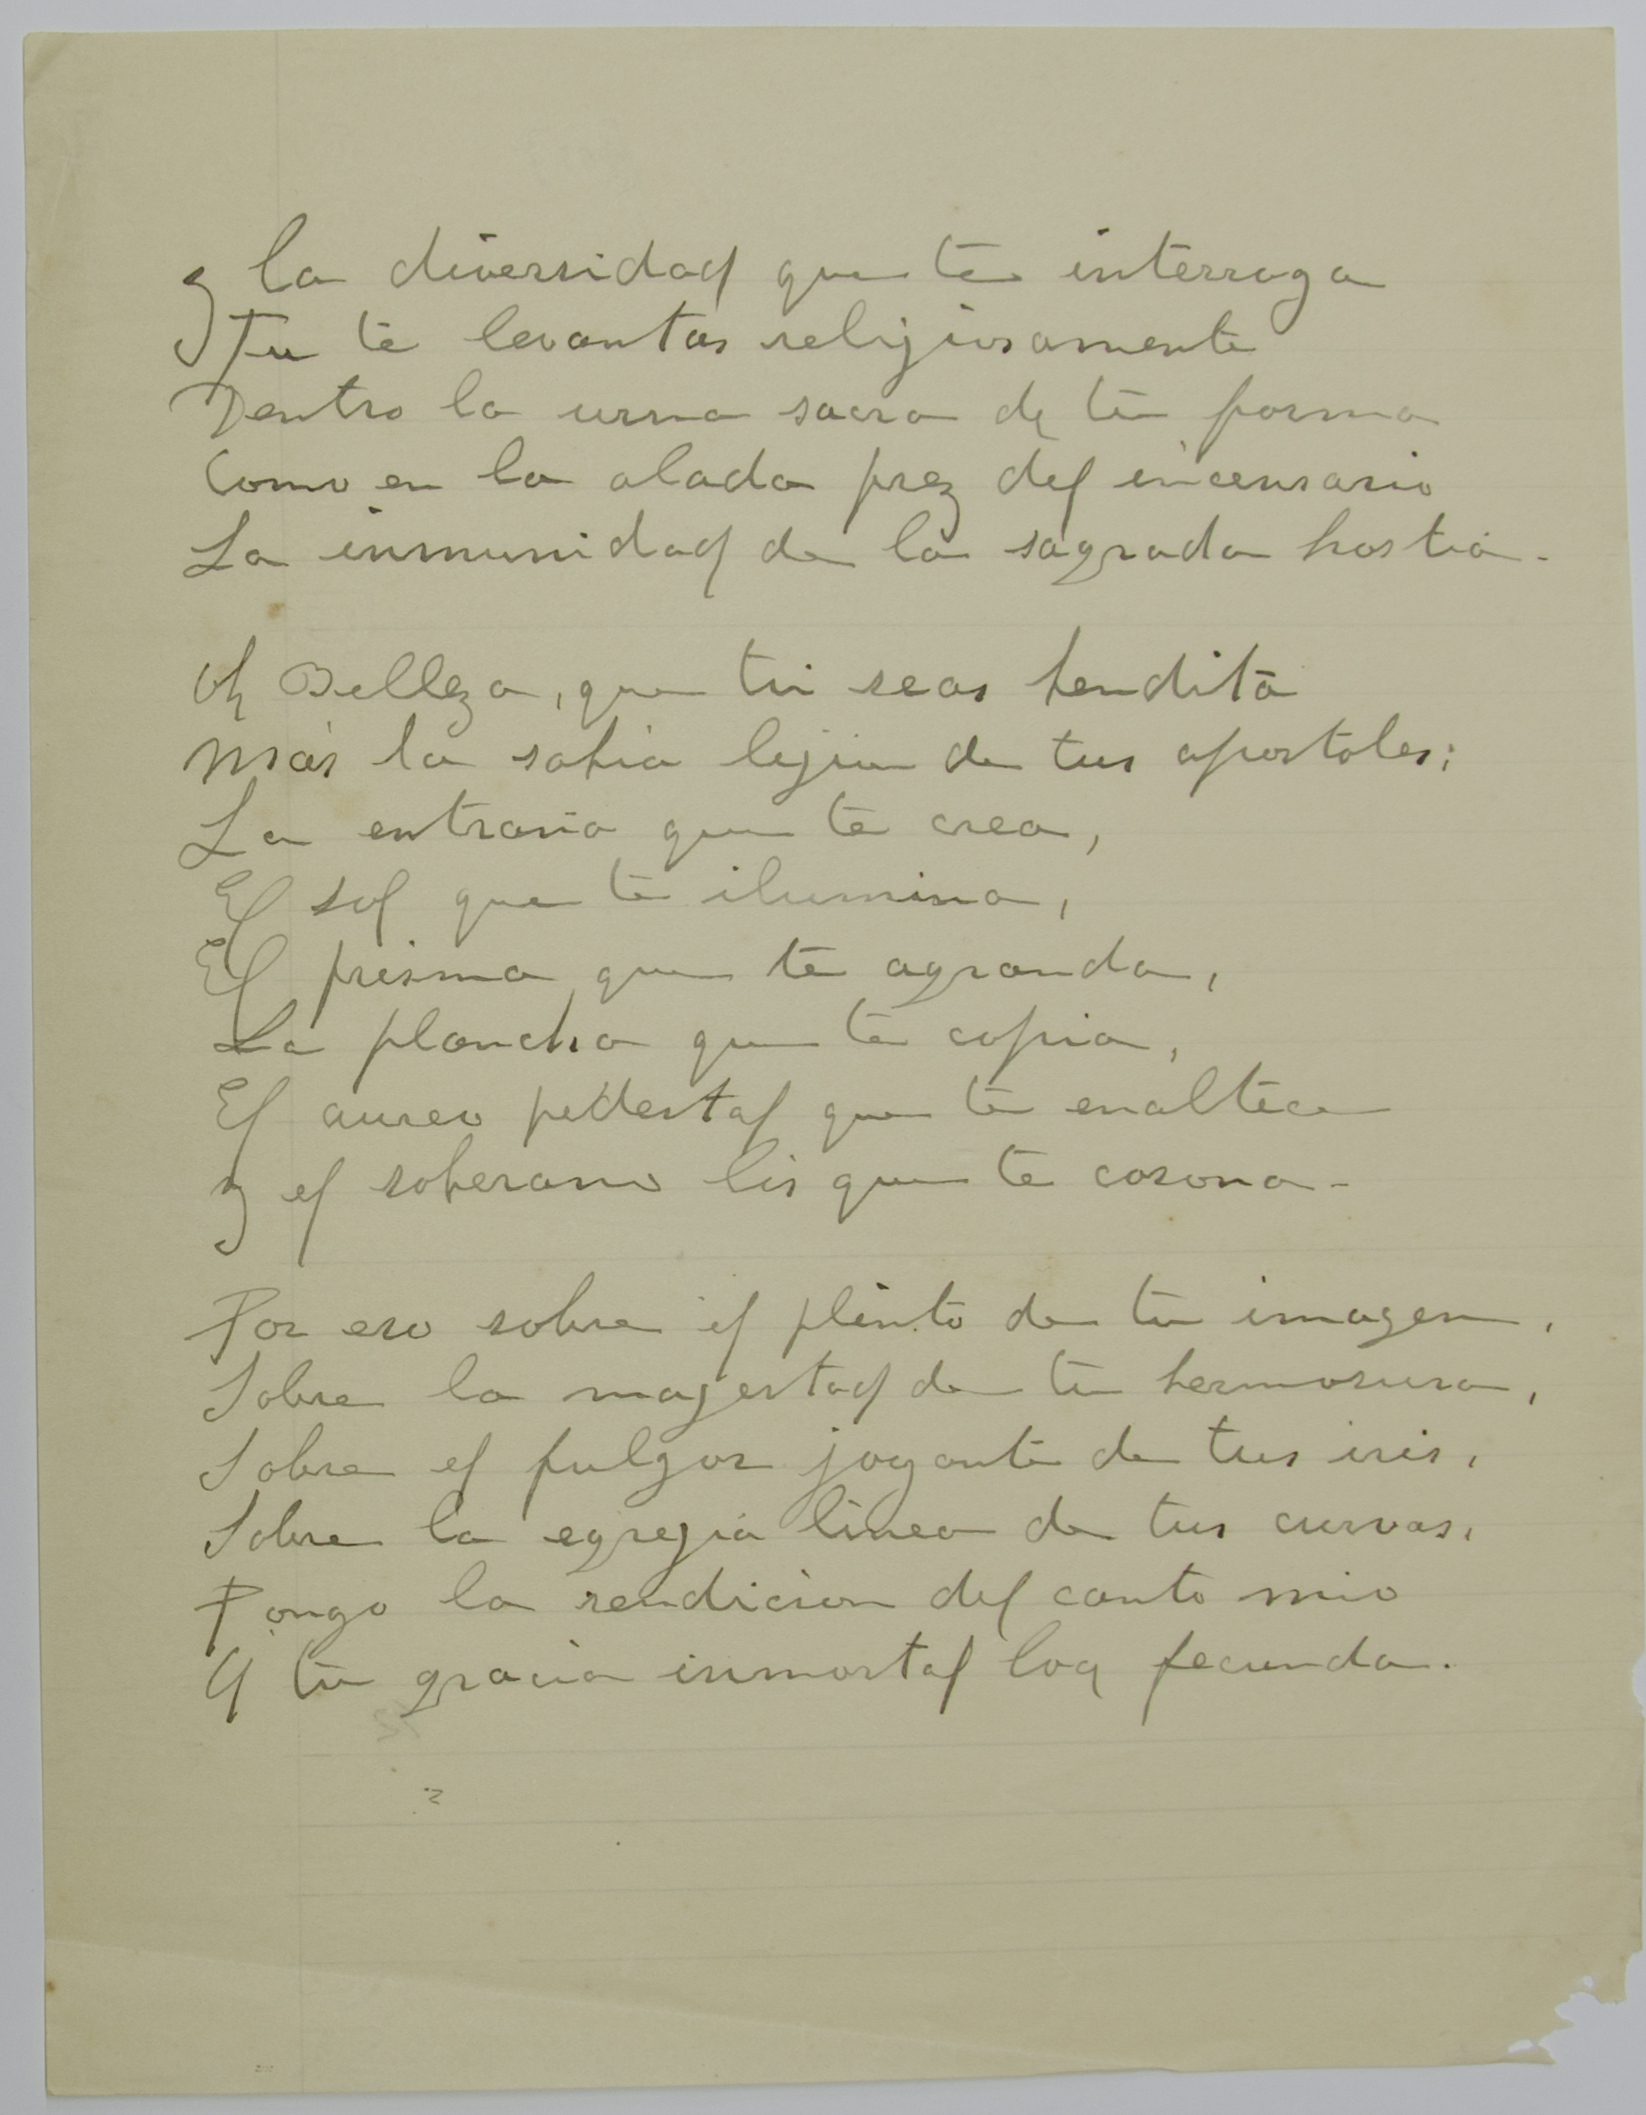 y la diversidad que te interroga
Tu te levantas religiosamente
Dentro la urna sacra de tu forma
Como en la alada prez del incensario
La inmunidad de la sagrada hostia.
Oh Belleza, que tu seas bendita
Más la sabia legion de tus apostoles;
La entraña que te crea,
El sol que te ilumina,
El prisma que te agranda,
La plancha que te copia,
El aureo pedestal que te enaltece
y el soberano lis que te corona.
Por eso sobre el plinto de tu imagen,
Sobre la magestad de tu hermosura,
Sobre el fulgor joyante de tus iris,
Sobre la egregia linea de tus curvas,
Pongo la rendicion del canto mio
Y tu gracia inmortal loa fecunda.